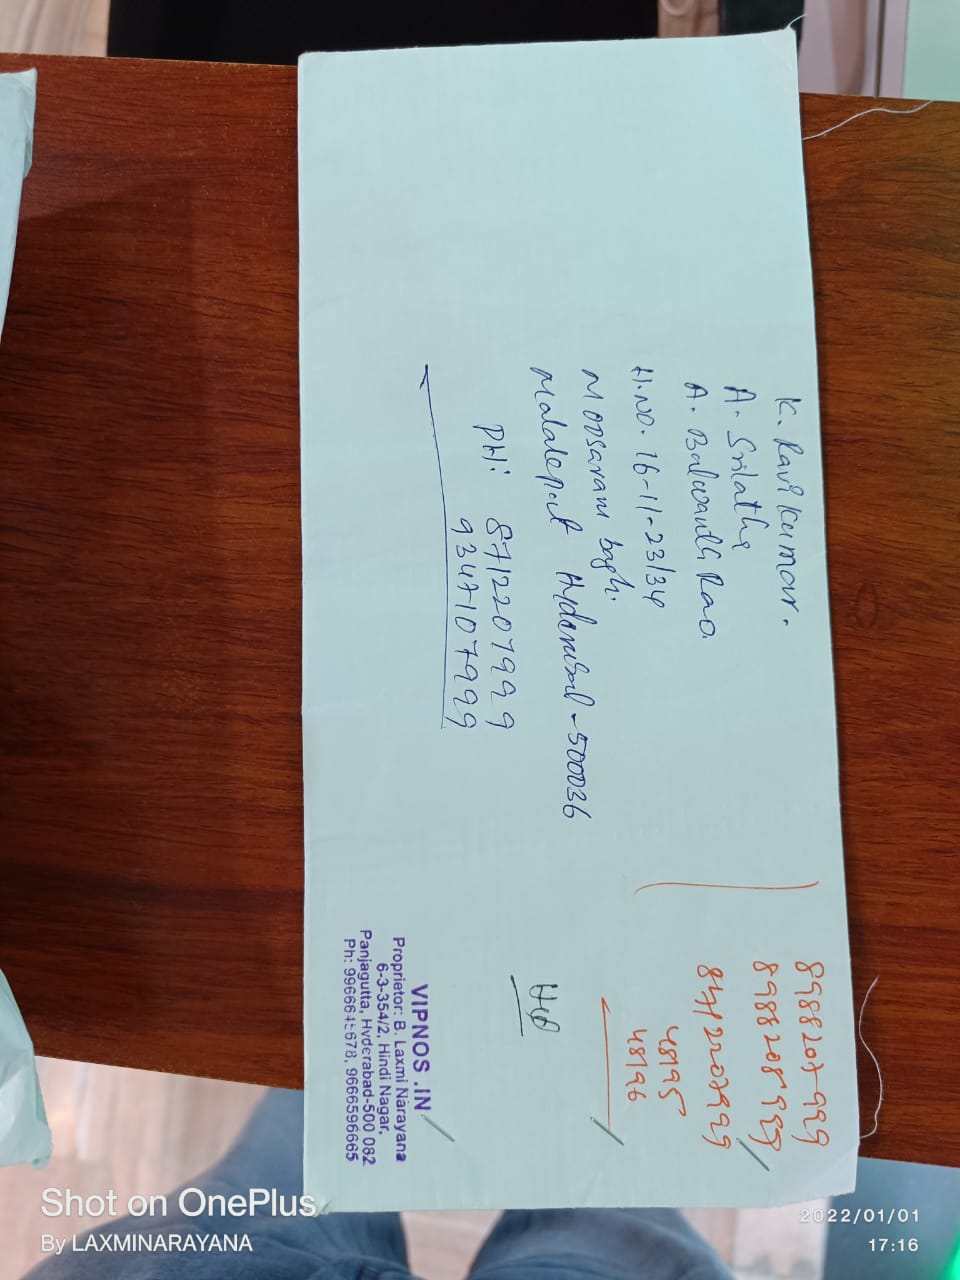 K. Ravi Kumar.
A. Srilatha
A. Balwanth Rao.
H.NO. 16-11-23/34
Moosaram bagh.
Malakpet Hyderabad - 500036
PH: 8712207999
9347107999
8988207999
8988208999
8712207999
48195
48196
VIPNOS .IN
Proprietor: B. Laxmi Narayana
6-3-354/2, Hindi Nagar,
Panjagutta, Hyderabad-500 082
Ph: 9966645678, 9666596665
Shot on OnePlus
By LAXMINARAYANA
2022/01/01
17:16